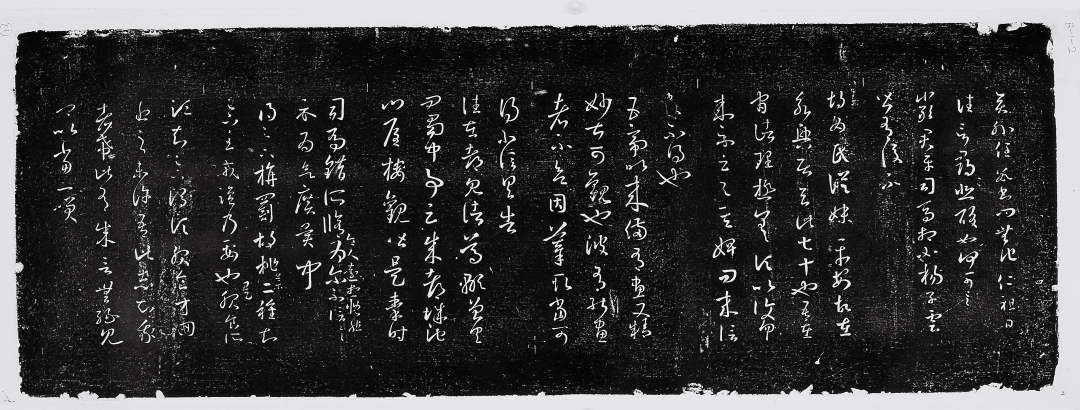 無奕外任數書問無他仁祖日
往言尋悲酸如何可言
嚴君平司馬相如揚子雲
皆有後不
胡母氏從妹平安故在
永興居去此七十也吾在
官諸理極差頃比復勿
來示云與其婢問來信
不得也
五帝以來備有畫又精
妙甚可觀也彼有能畫
者不欲因摹取當可
得不信具告
往在都見諸葛顒曾具
問蜀中事云成都城池
門屋樓觀皆是秦時
司馬錯所脩令人遠想慨然為爾不信一一
示為欲廣異聞
得足下旃罽胡桃藥二種知
足下至戎鹽乃要也是服食所
須知足下謂須服食方回
近之未許吾此志知我
者希此有成言無緣見
卿以當一笑